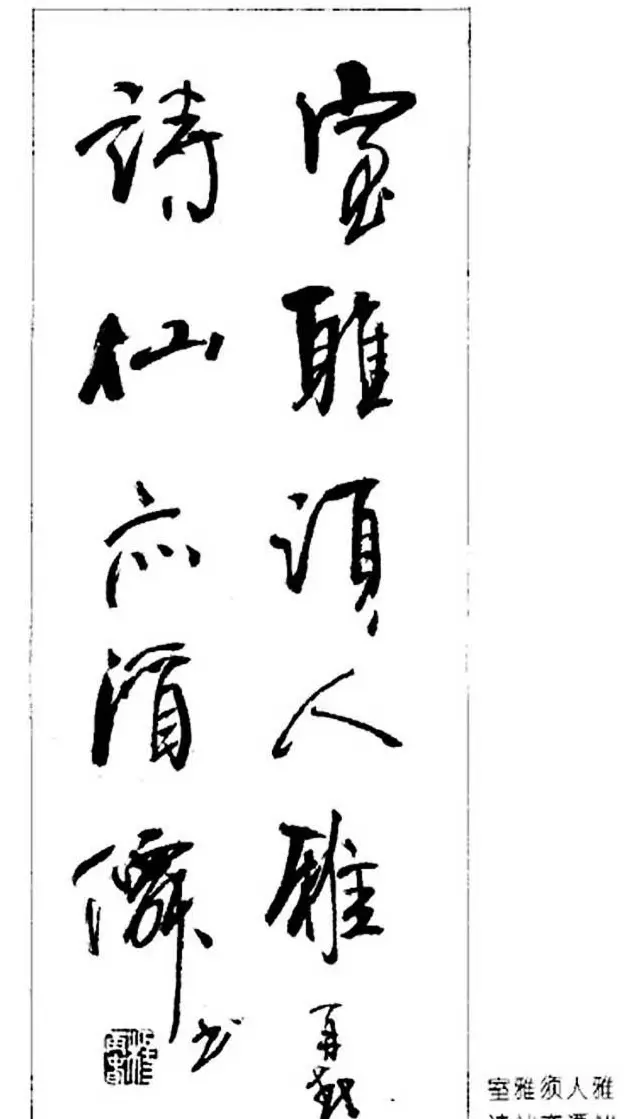 室雅須人雅
詩仙亦酒僊
书
室雅须人雅